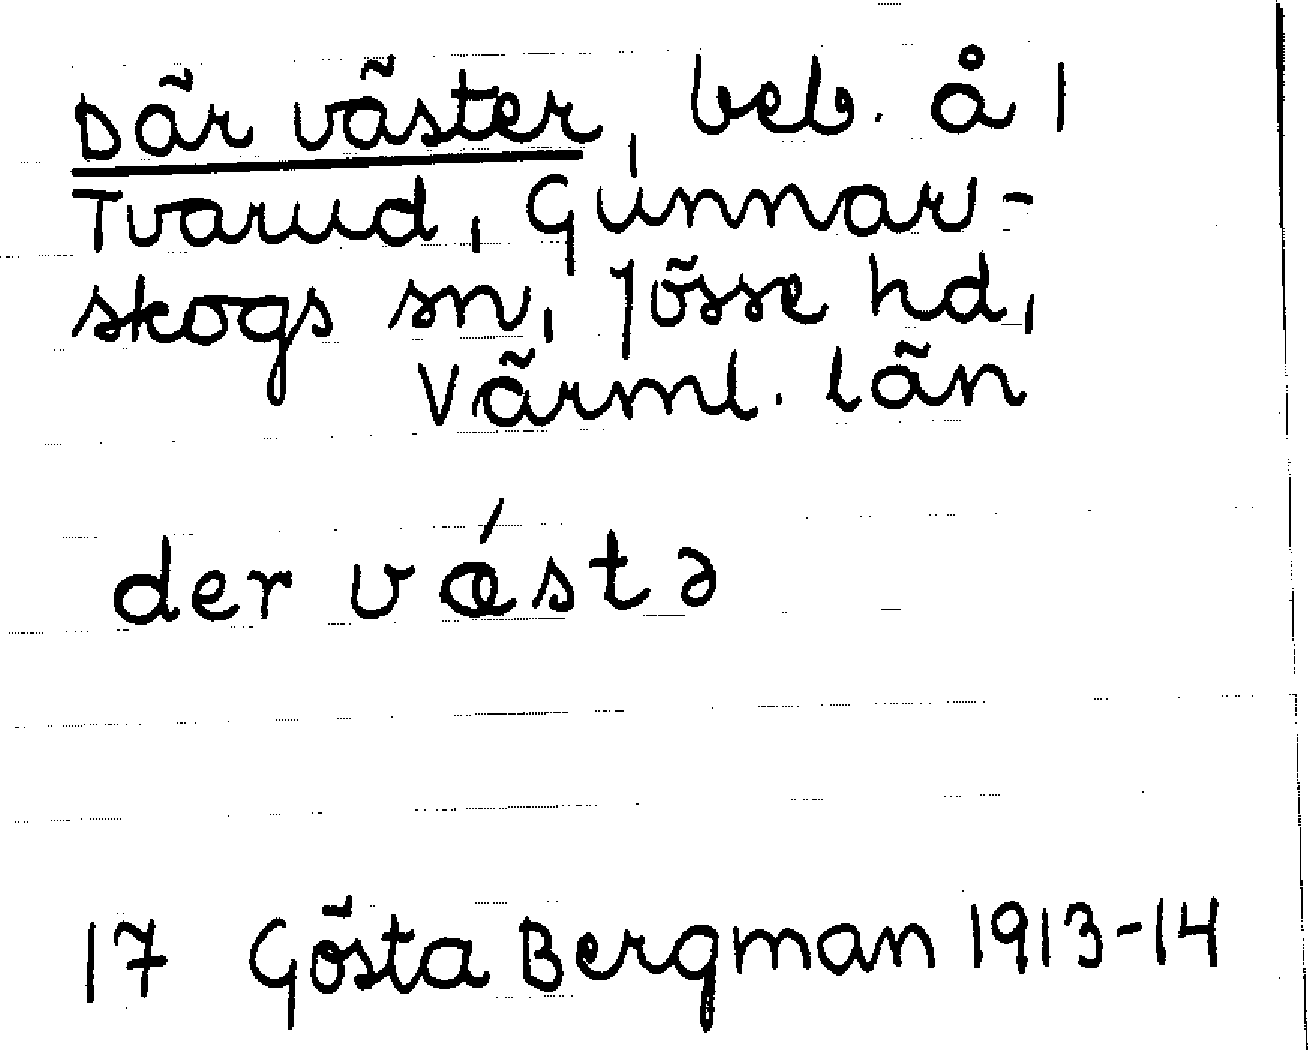 Där väster, beb. å 1
Tvarud, Gunnar-
skogs sn, Jösse hd,
Värml. län
der vǽstə
17 Gösta Bergman 1913-14